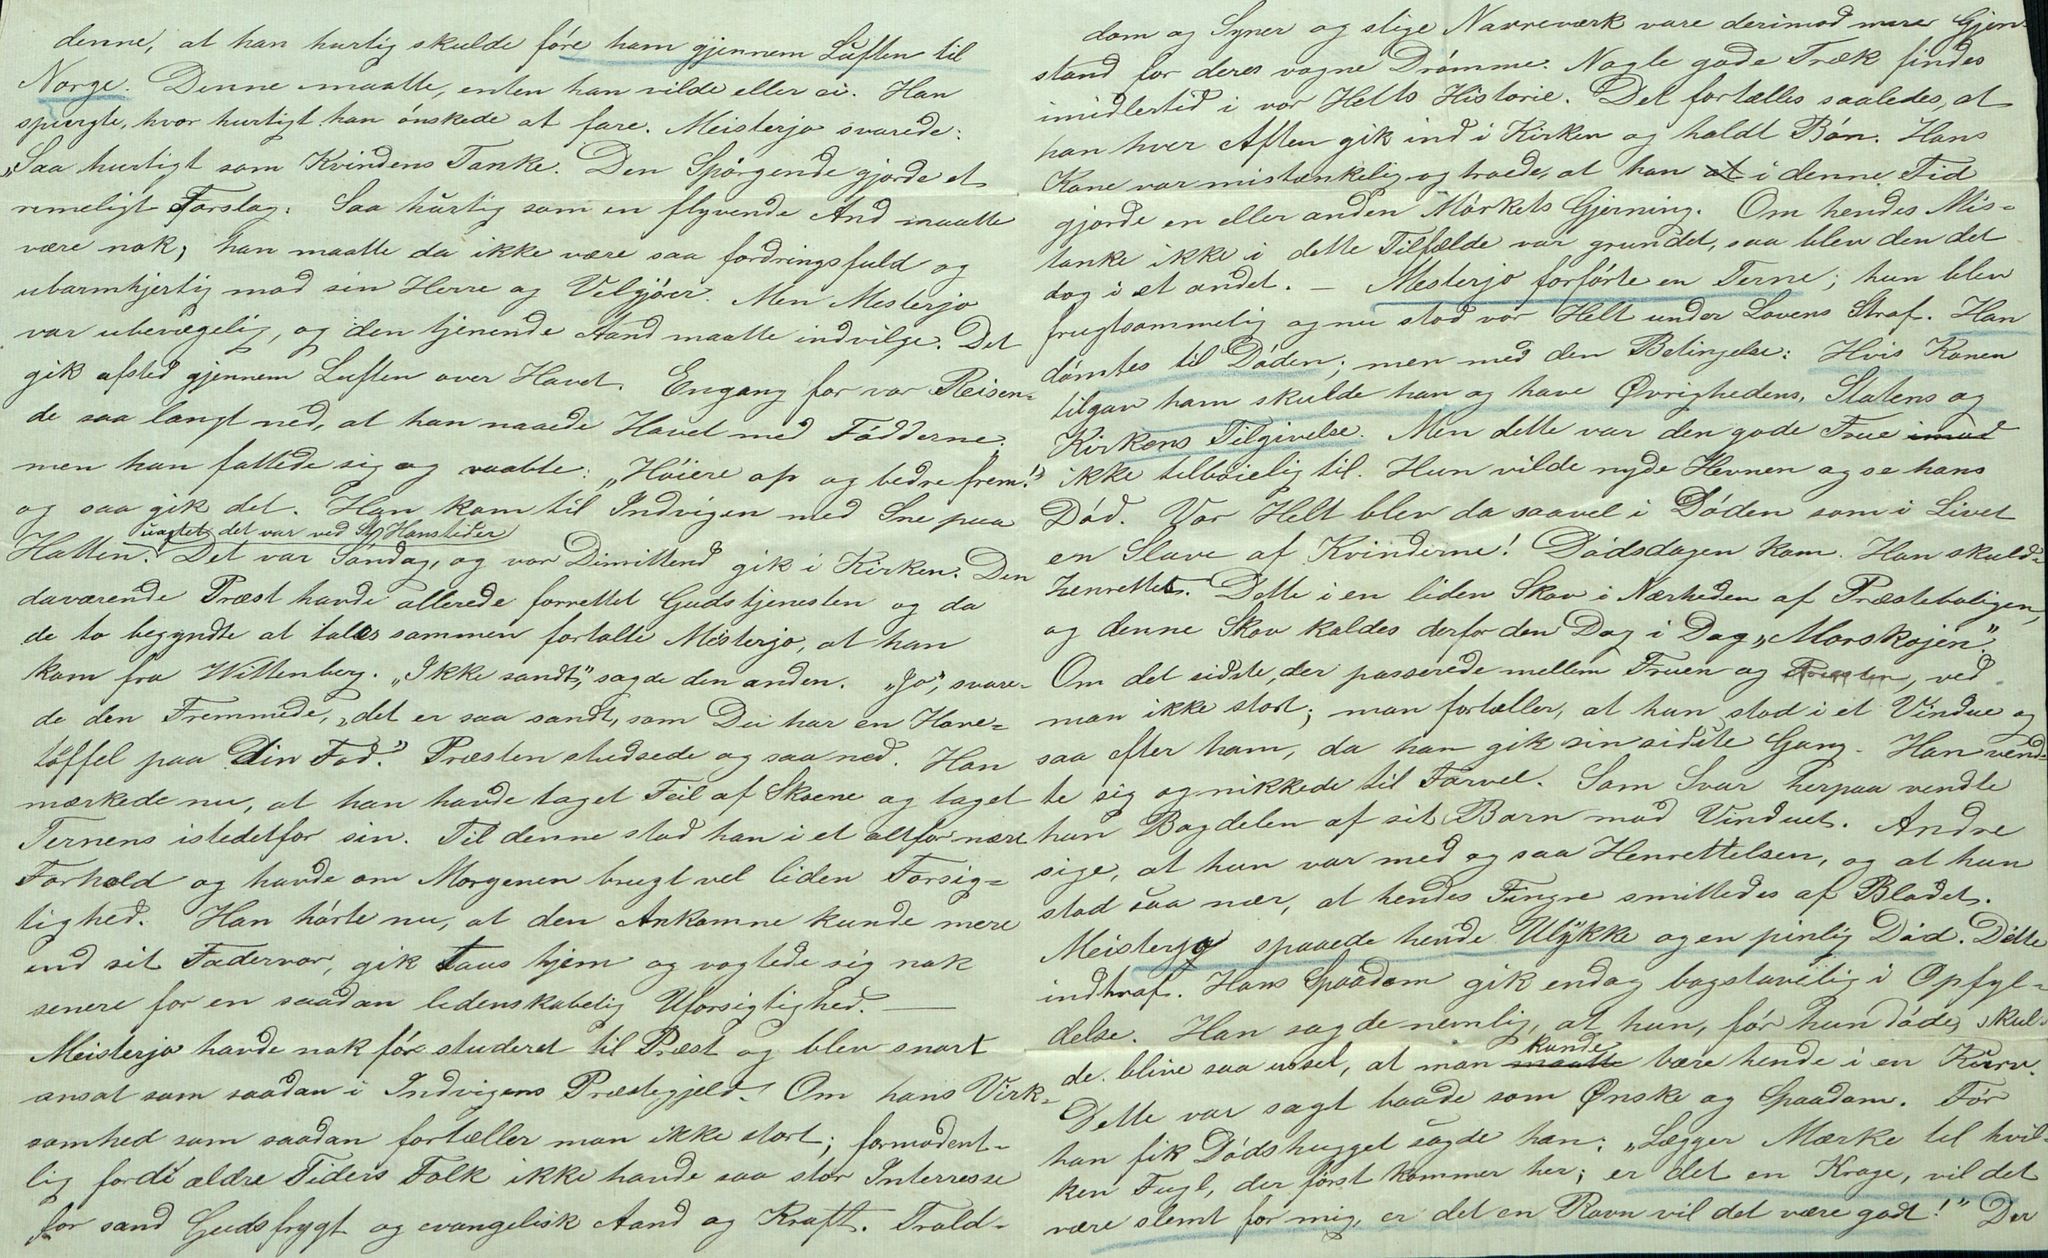 denne, at han hurtig skulde føre ham gjennem Luften til
Norge. Denne maatte, enten han vilde eller ei. Han
spurgte, hvor hurtigt han ønskede at fare. Meisterjo svarede:
„Saa hurtigt som Kvindens Tanke. Den Spørgende gjorde et
rimeligt Forslag: Saa hurtig som en flyvende And maatte
være nok; han maatte da ikke være saa fordringsfuld og
ubarmhjertig mod sin Herre og Velgjører. Men Mesterjo
var ubevægelig, og den tjenende Aand maatte indvilge. Det
gik afsted gjennem Luften over Havet. Engang for vor Reisen-
de saa langt ned, at han naaede Havet med Fødderne,
men han fattede sig og raabte: „Høiere op og bedre frem!”
og saa gik det. Han kom til Indvigen med Sne paa
uagtet det var ved St Hanstider
Hatten. Det var Søndag, og vor Dimittend gik i Kirken. Den
daværende Præst havde allerede forrettet Gudstjenesten og da
de to begyndte at tales sammen fortalte Misterjo, at han
kom fra Wittenberg. „Ikke sandt”, sagde den anden. „Jo”, svare-
de den Fremmede, „det er saa sandt, som Du har en Hone-
tøffel paa Din Fod.” Præsten studsede og saa ned. Han
mærkede nu, at han havde taget Feil af Skoene og taget
Ternens istedetfor sin. Til denne stod han i et altfor nære
Forhold og havde om Morgenen brugt vel liden Forsig-
tighed. Han hørte nu, at den Ankomne kunde mere
end sit Fadervor, gik taus hjem og vogtede sig nok
senere for en saadan lidenskabelig Uforsigtighed. —
Meisterjo havde nok før studeret til Præst og blev snart
ansat som saadan i Indvigens Præstegjeld. Om hans Virk-
somhed som saadan fortæller man ikke stort; formodent-
lig fordi ældre Tiders Folk ikke havde saa stor Interresse
for sand Gudsfrygt og evangelisk Aand og Kraft. Trold-
dom og Syner og slige Narreværk vare derimod mere Gjen-
stand for deres vogne Drømme. Nogle gode Træk findes
imidlertid i vor Helts Historie. Det fortælles saaledes, at
han hver Aften gik ind i Kirken og holdt Bøn. Hans
Kone var mistænkelig og troede, at han at i denne Tid
gjorde en eller anden Mørkets Gjerning. Om hendes Mis-
tanke ikke i dette Tilfælde var grundet, saa blev den det
dog i et andet. — Mesterjo forførte en Terne; hun blev
frugtsommelig og nu stod vor Helt under Lovens Straf. Han
dømtes til Døden; men med den Betingelse: Hvis Konen
tilgav ham skulde han og have Øvrighedens, Statens og
Kirkens Tilgivelse. Men dette var den gode Frue imod
ikke tilbøielig til. Hun vilde nyde Hevnen og se hans
Død. Vor Helt blev da saavel i Døden som i Livet
en Slave af Kvinderne! Dødsdagen kom. Han skuld-
henrettes. Dette i en liden Skov i Nærheden af Præsteboligen,
og denne Skov kaldes derfor den Dag i Dag „Morskojen”.
Om det sidste, der passerede mellem Fruen og Præsten, ved
man ikke stort; man fortæller, at hun stod i et Vindue og
saa efter ham, da han gik sin sidste Gang. Han vend-
te sig og nikkede til Farvel. Som Svar herpaa vendte
hun Bagdelen af sit Barn mod Vinduet. Andre
sige, at hun var med og saa Henrettelsen, og at hun
stod saa nær, at hendes Fingre smittedes af Blodet.
Meisterjo spaaede hende Ulykke og en pinlig Død. Dette
indtraf. Hans Spaadom gik endog bogstavelig i Opfyl-
delse. Han sagde nemlig, at hun, før hun døde, skul-
kunde
de blive saa ussel, at man maatte bære hende i en Kurv.
Dette var sagt baade som Ønske og Spaadom. Før
han fik Dødshugget sagde han: „Lægger Mærke til hvil-
ken Fugl, der først kommer her; er det en Krage, vil det
være slemt for mig, er det en Ravn vil det være godt!” Der